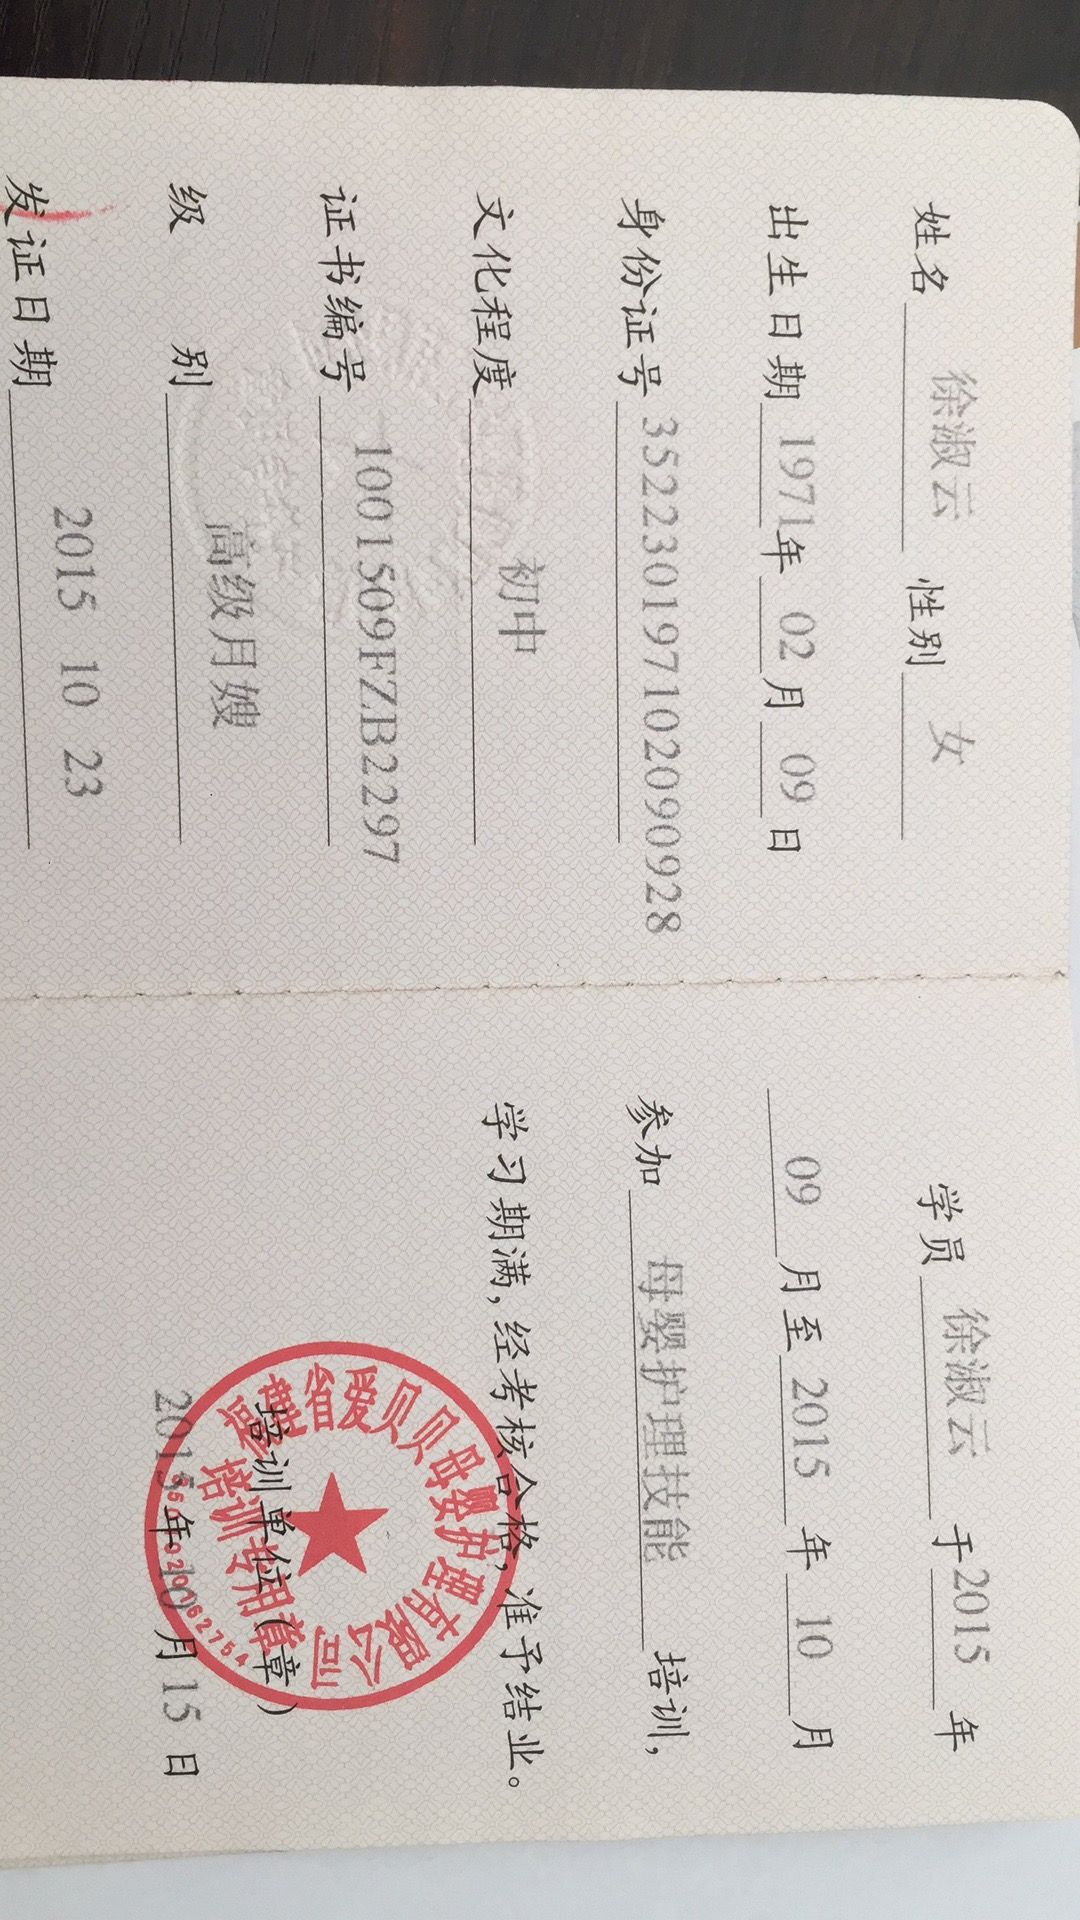 姓名 徐淑云 性别 女
出生日期 1971年 02月 09日
身份证号 352230197102090928
文化程度 初中
证书编号 1001509FZB2297
级 别 高级月嫂
发证日期 2015 10 23
学员 徐淑云 于2015 年
09 月至 2015 年 10 月
参加 母婴护理技能 培训,
学习期满,经考核合格,准予结业。
培训单位(章)
2015年10月15日
福建省爱贝贝母婴护理有限公司
培训专用章